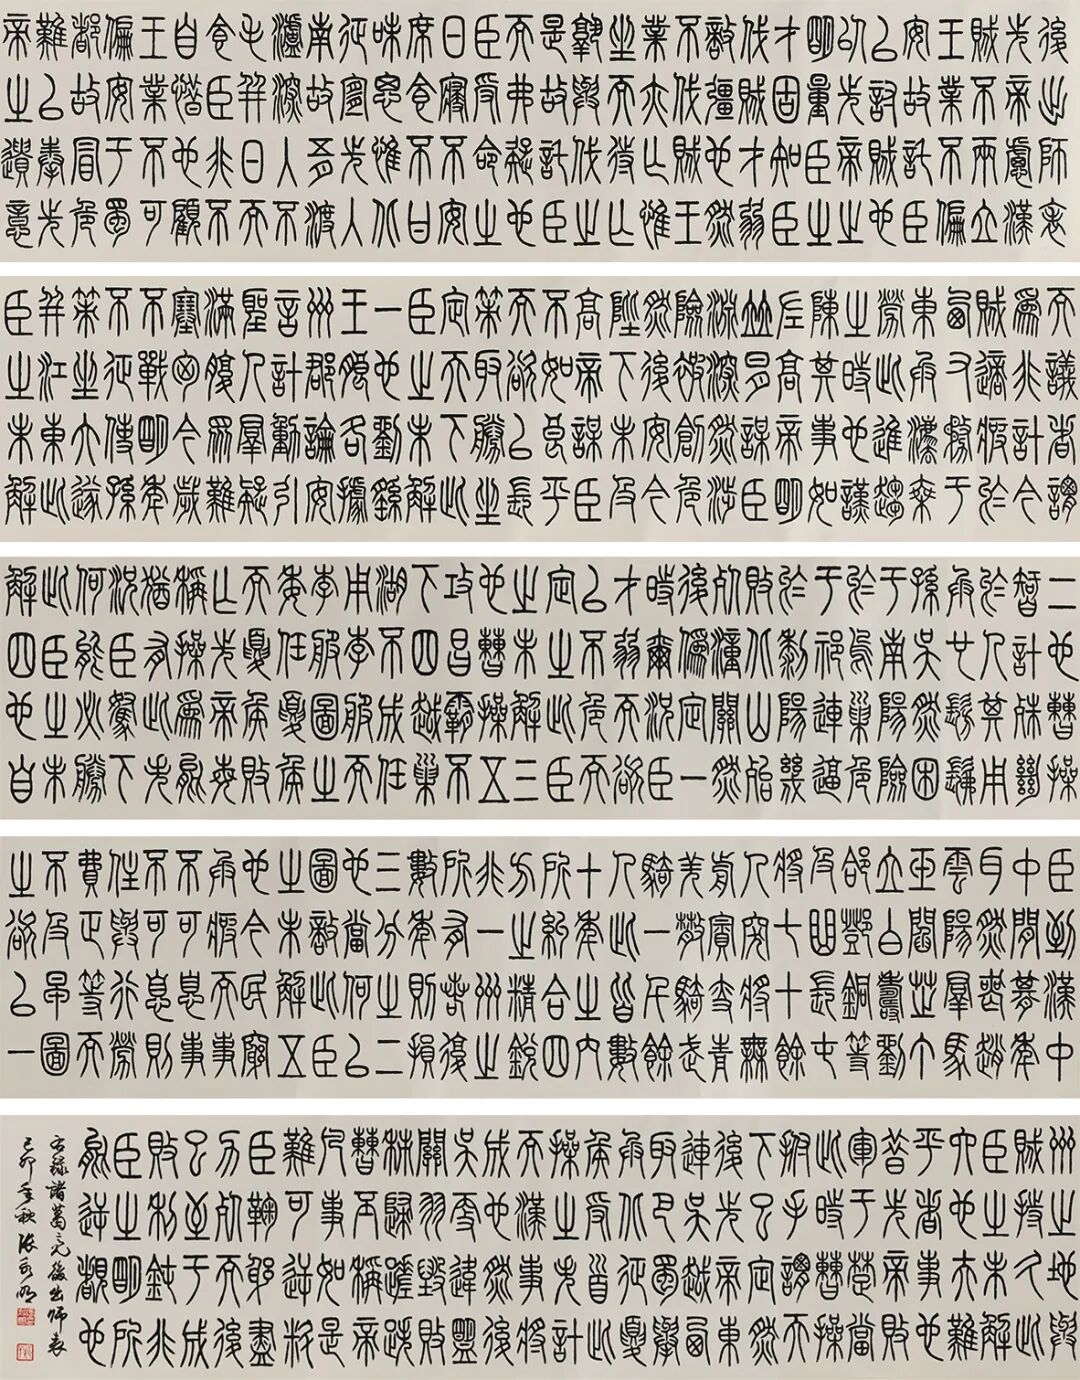 後出師表
先帝慮漢
賊不兩立
王業不偏
安故託臣
以討賊也
以先帝之
明量臣之
才固知臣
伐賊才弱
敵彊也然
不伐賊王
業亦亡惟
坐而待亡
孰與伐之
是故託臣
而弗疑也
臣受命之
日寢不安
席食不甘
味思惟北
征宜先入
南故五月渡
瀘深入不
毛并日而
食臣非不
自惜也顧
王業不可
偏安于蜀
都故冒危
難以奉先
帝之遺意
而議者謂
爲非計今
賊適疲於
西又務于
東兵法乘
勞此進趨
之時也謹
陳其事如
左高帝明
竝日月謀臣
淵深然涉
險被創危
然後安今
陛下未及
高帝謀臣
不如良平
而欲以長
策取勝坐
定天下此
臣之未解
一也劉繇
王朗各據
州郡論安
言計動引
聖人群疑
滿腹眾難
塞胸今歲
不戰明年
不征使孫
策坐大遂
并江東此
臣之未解
二也曹操
智計殊絕
於人其用
兵也髣髴
孫吳然困
于南陽險
於烏巢危
于祁連逼
於黎陽幾
敗北山殆
死潼關然
後偽定一
時爾況臣
才弱而欲
以不危而
定之此臣
之未解三
也曹操五
攻昌霸不
下四越巢
湖不成任
用李服而
李服圖之
委任夏侯
而夏侯敗
亡先帝每
稱操為能
猶有此失
況臣駑下
何能必勝
此臣之未
解四也自
臣到漢中
中間朞年
耳然喪趙
雲陽群馬
玉閻芝丁
立白壽劉
郃鄧銅等
及曲長屯
將七十餘
人突將無
前賨叟青
羌散騎武
騎一千餘
人此皆數
十年之內
所糾合四
方之精銳
非一州之
所有若復
數年則損
三分之二
也當何以
圖敵此臣
之未解五
也今民窮
兵疲而事
不可息事
不可息則
住與行勞
費正等而
不及早圖
之欲以一
州之地與
賊持久此
臣之未解
六也夫難
平者事也
昔先帝敗
軍于楚當
此時曹操
拊手謂天
下已定然
後先帝東
連吳越西
取巴蜀舉
兵北征夏
侯受首此
操之失計
而漢事將
成也然後
吳更違盟
關羽毀敗
秭歸蹉跌
曹丕稱帝
凡事如是
難可逆料
臣鞠躬盡
力死而後
已至于成
敗利鈍非
臣之明所
能逆覩也
右錄諸葛亮後出師表
己卯年秋張永明